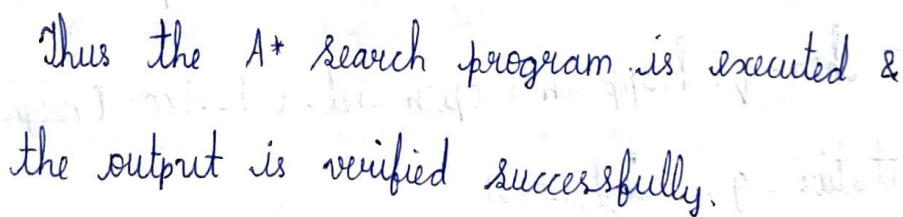 Thus the A* search program is executed &
the output is verified successfully.